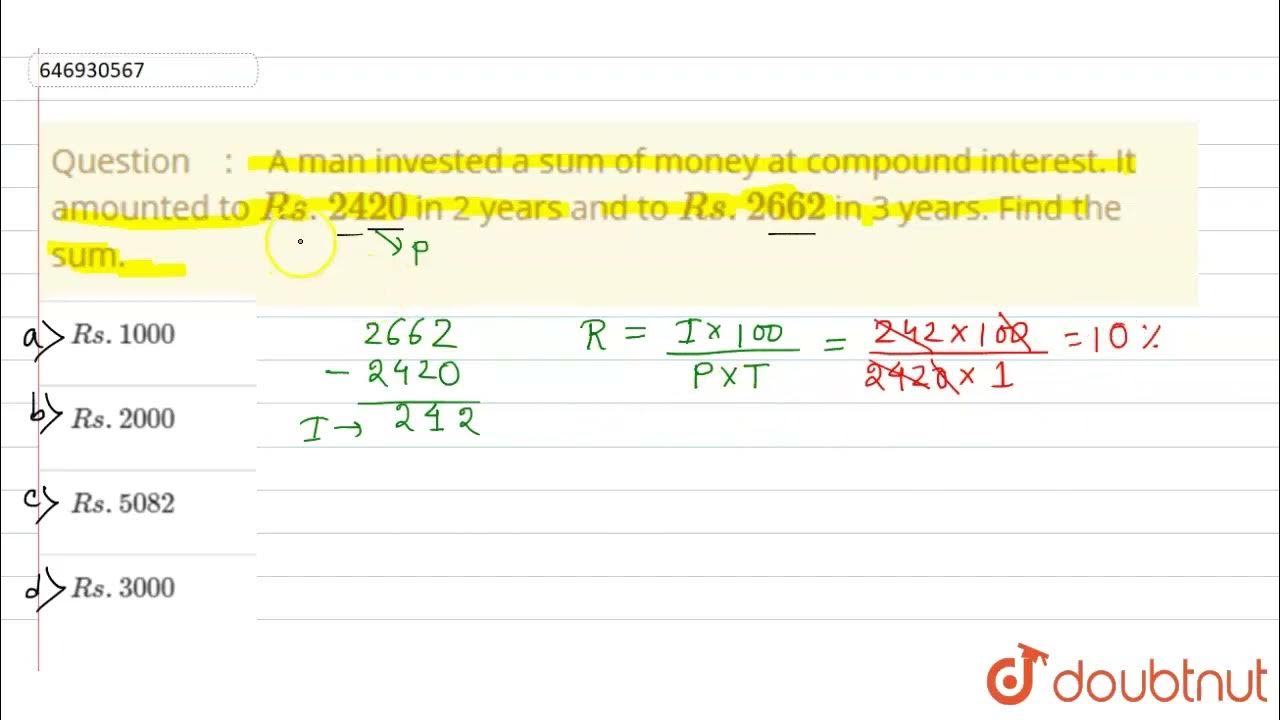 646930567
Question : A man invested a sum of money at compound interest. It
amounted to Rs. 2420 in 2 years and to Rs. 2662 in 3 years. Find the
sum.
P
a) Rs. 1000
b) Rs. 2000
c) Rs. 5082
d) Rs. 3000
2662
- 2420
I → 242
R = I × 100 / P × T = 242 × 100 / 2420 × 1 = 10 %
doubtnut